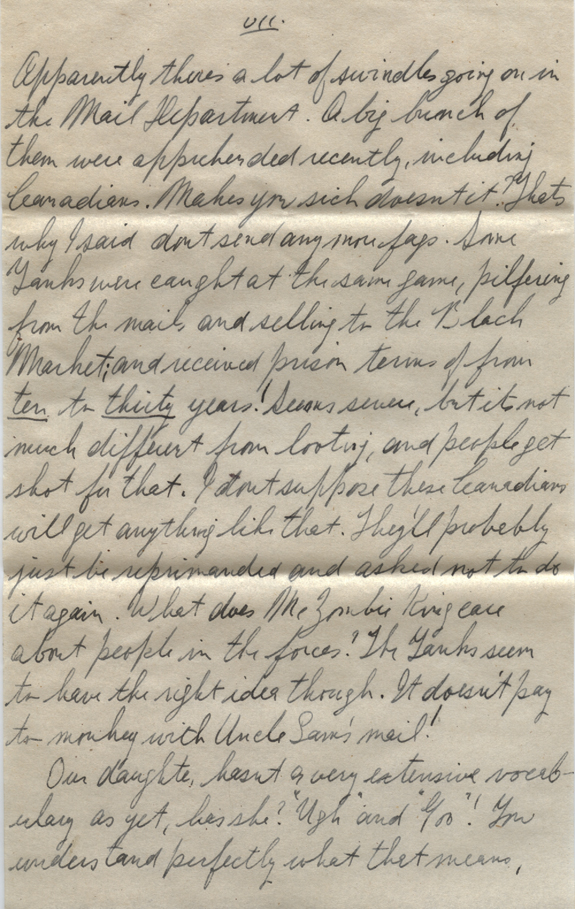 VII.
Apparently theres a lot of swindles going on in
the Mail Department. A big bunch of
them were apprehended recently, including
Canadians. Makes you sick doesnt it? Thats
why I said dont send any more fags. Some
Yanks were caught at the same game, pilfering
from the mails and selling to the Black
Market; and received prison terms of from
ten to thirty years! Seems severe, but its not
much different from looting, and people get
shot for that. I dont suppose these Canadians
will get anything like that. They'll probably
just be reprimanded and asked not to do
it again. What does McZombie King care
about people in the forces? The Yanks seem
to have the right idea though. It doesn't pay
to monkey with Uncle Sam's mail!
Our daughter hasnt a very extensive vocab-
ulary as yet, has she? "Ugh" and "Goo"! You
understand perfectly what that means,